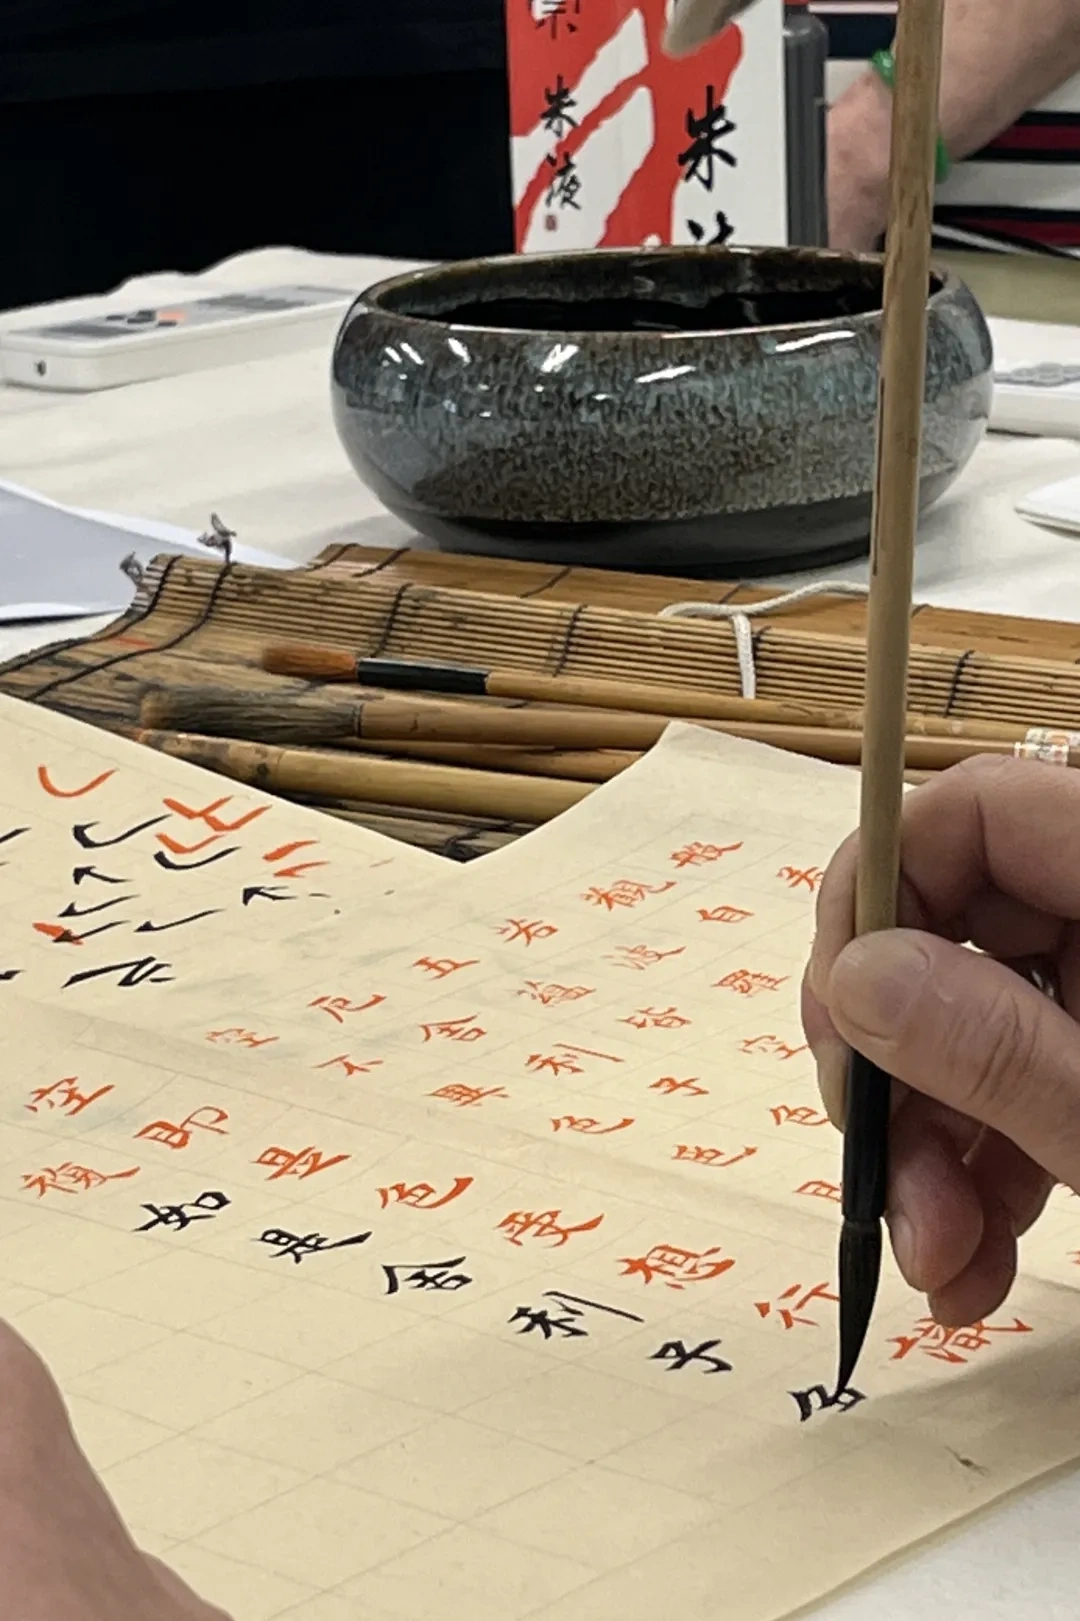 朱
朱
般若
觀自
若波羅
五蘊皆空
厄舍利子色
空不異色色
空即是色受想行識
復如是舍利子